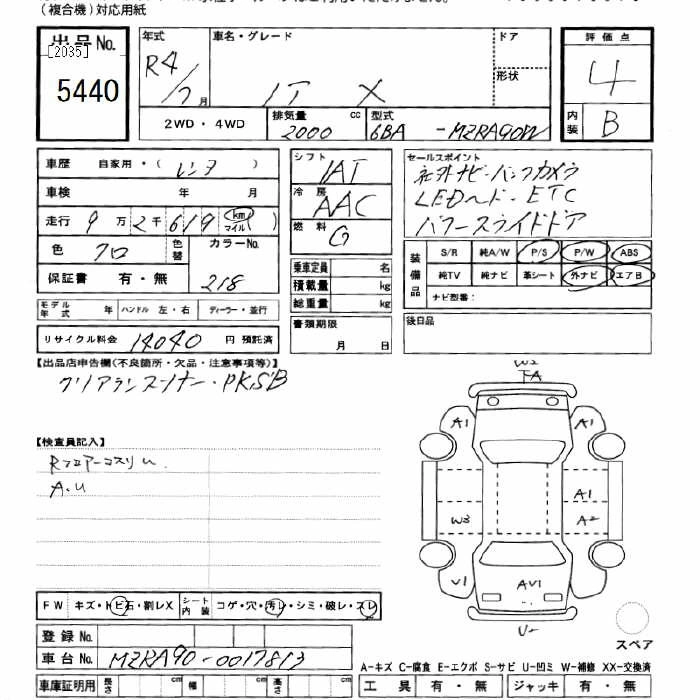 (複合機)対応用紙
出品No.
[2035]
5440
年式
R4/7月
車名・グレード
X
ドア
形状
評価点
4
内装
B
2WD・4WD
排気量 cc
2000
型式
6BA-MZRA90W
車歴 自家用・(レンタ)
車検 年 月
走行 9万2千619 (km マイル)
色 クロ
色替
カラーNo.
218
保証書 有・無
シフト
IAT
冷房
AAC
燃料
G
セールスポイント
社外ナビ・バックカメラ
LEDヘッド・ETC
パワースライドドア
装備品
S/R 純A/W P/S P/W ABS
純TV 純ナビ 革シート 外ナビ エアB
ナビ型番:
乗車定員 名
積載量 kg
総重量 kg
モデル年式 年 ハンドル 左・右 ディーラー・並行
リサイクル料金 14040 円 預託済
書類期限
月 日
後日品
【出品店申告欄(不良箇所・欠品・注意事項等)】
クリアランスソナー・PKSB
【検査員記入】
Rフロアーコスリu
A.U
W2
FA
A1
A1
A1
W3
A2
U1
AU1
A1
U
スペア
FW キズ・トビ石・割レX
シート内装 コゲ・穴・汚レ・シミ・破レ・スレ
登録No.
車台No. MZRA90-0017813
車庫証明用 長さ cm 幅 cm 高さ cm
A-キズ C-腐食 E-エクボ S-サビ U-凹ミ W-補修 XX-交換済
工具 有・無 ジャッキ 有・無